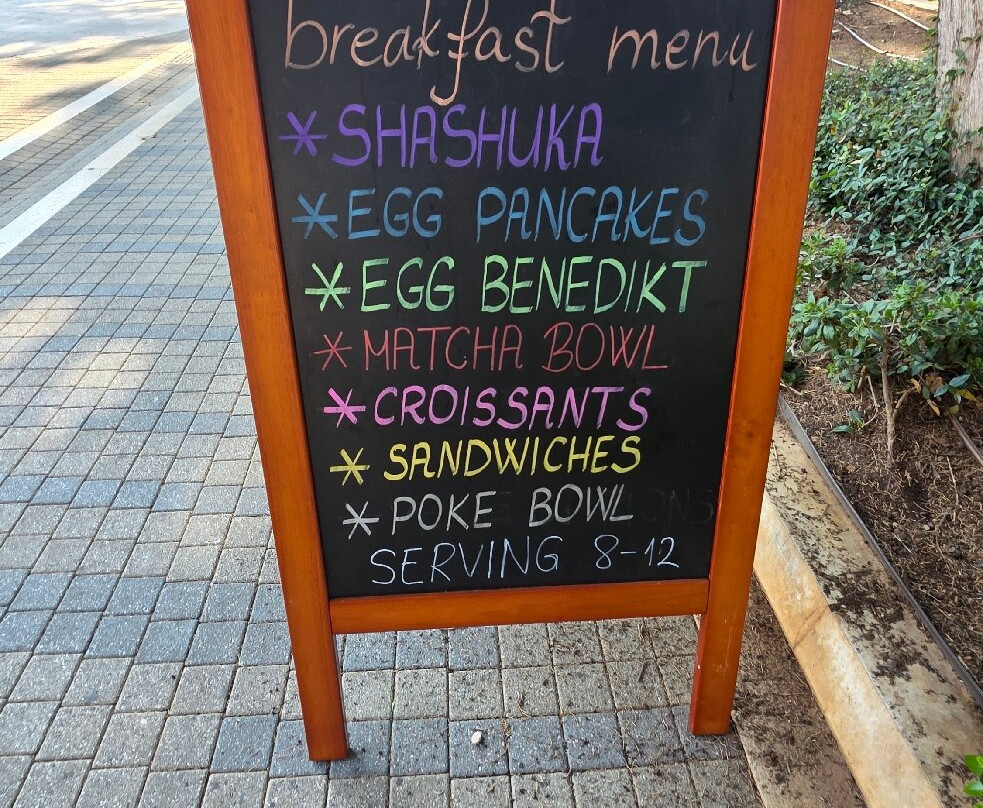 breakfast menu
* SHASHUKA
* EGG PANCAKES
* EGG BENEDIKT
* MATCHA BOWL
* CROISSANTS
* SANDWICHES
* POKE BOWL
SERVING 8-12